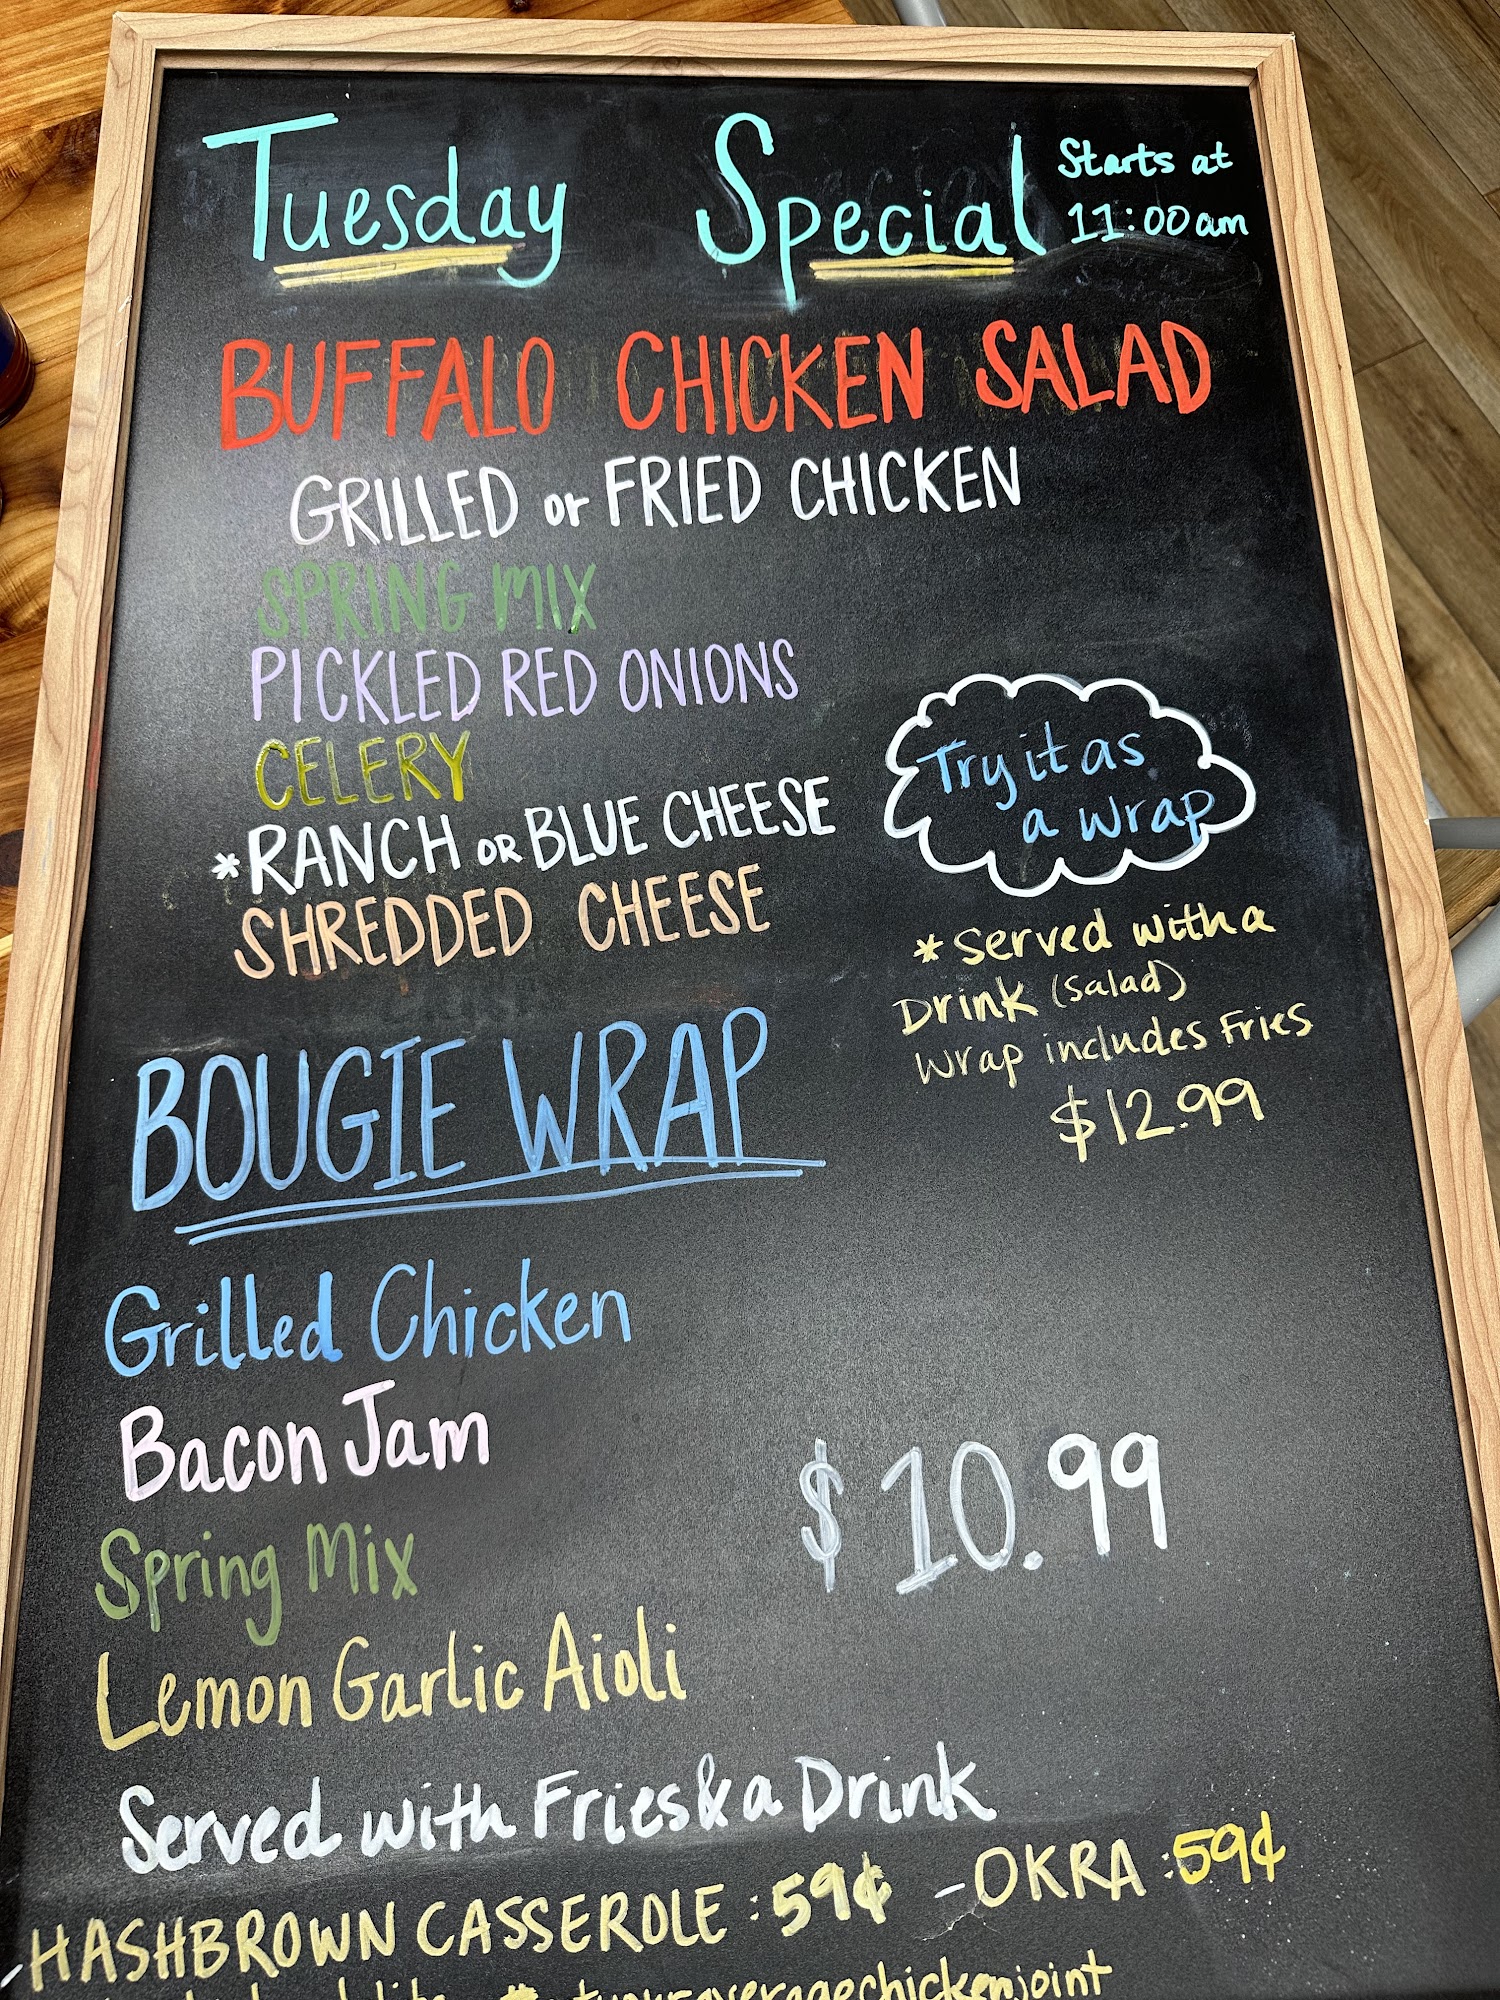 Tuesday Special Starts at
11:00am
BUFFALO CHICKEN SALAD
GRILLED or FRIED CHICKEN
SPRING MIX
PICKLED RED ONIONS
CELERY
*RANCH OR BLUE CHEESE
SHREDDED CHEESE
Try it as
a wrap
*Served with a
Drink (salad)
Wrap includes Fries
$12.99
BOUGIE WRAP
Grilled Chicken
Bacon Jam
Spring Mix
Lemon Garlic Aioli
$10.99
Served with Fries & a Drink
-HASHBROWN CASSEROLE: 59¢ -OKRA: 59¢